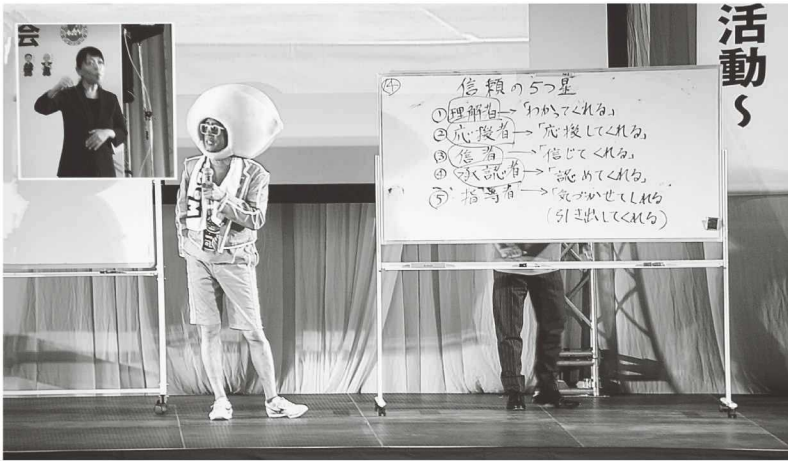 会
活動～
④ 信頼の5つ星
①理解者→「わかってくれる」
②応援者→「応援してくれる」
③信者→「信じてくれる」
④承認者→「認めてくれる」
⑤指導者→「気づかせてくれる
(引き出してくれる)